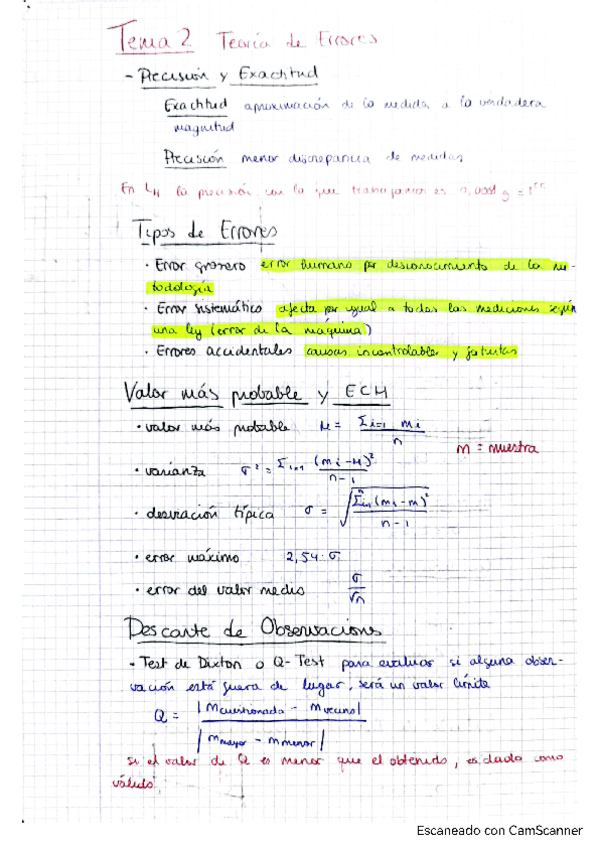 Tema 2 Teoría de Errores
- Precisión y Exactitud
Exactitud aproximación de la medida a la verdadera
magnitud
Precisión menor discrepancia de medidas
En la precisión con la que trabajamos es
Tipos de Errores
· Error grosero error humano por desconocimiento de la me-
todología
· Error sistemático afecta por igual a todas las mediciones según
una ley (error de la máquina)
· Errores accidentales causas incontrolables y fortuitas
Valor más probable y ECM
· valor más probable M = Σi=1 mi / n
m = muestra
· varianza σ² = Σi=1 (mi - M)² / n - 1
· desviación típica σ = √(Σi=1 (mi - m)² / n - 1)
· error máximo 2,54 · σ
· error del valor medio σ / √n
Descarte de Observacions
- Test de Dixton o Q-Test para evaluar si alguna obser-
vación está fuera de lugar, será un valor límite
Q = |mcuestionada - mvecino| / |mmayor - mmenor|
si el valor de Q es menor que el obtenido, es dado como
válido